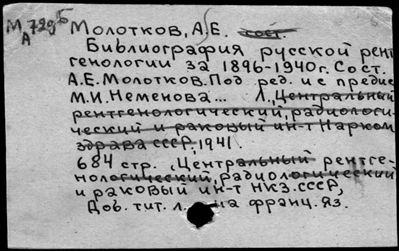 М729Б
А
Молотков, А.Е. сост.
Библиография русской рент
генологии за 1896-1940г. Сост.
А.Е.Молотков. Под ред. и с предис
М.И.Неменова... Л., Центральный
рентгенологический, радиологи-
ческий и раковый ин-т Нарком
здрава СССР, 1941.
684 стр. (Центральный рентге-
нологический, радиологический
и раковый ин-т НКЗ.СССР,
Доб. тит. л. на франц. яз.